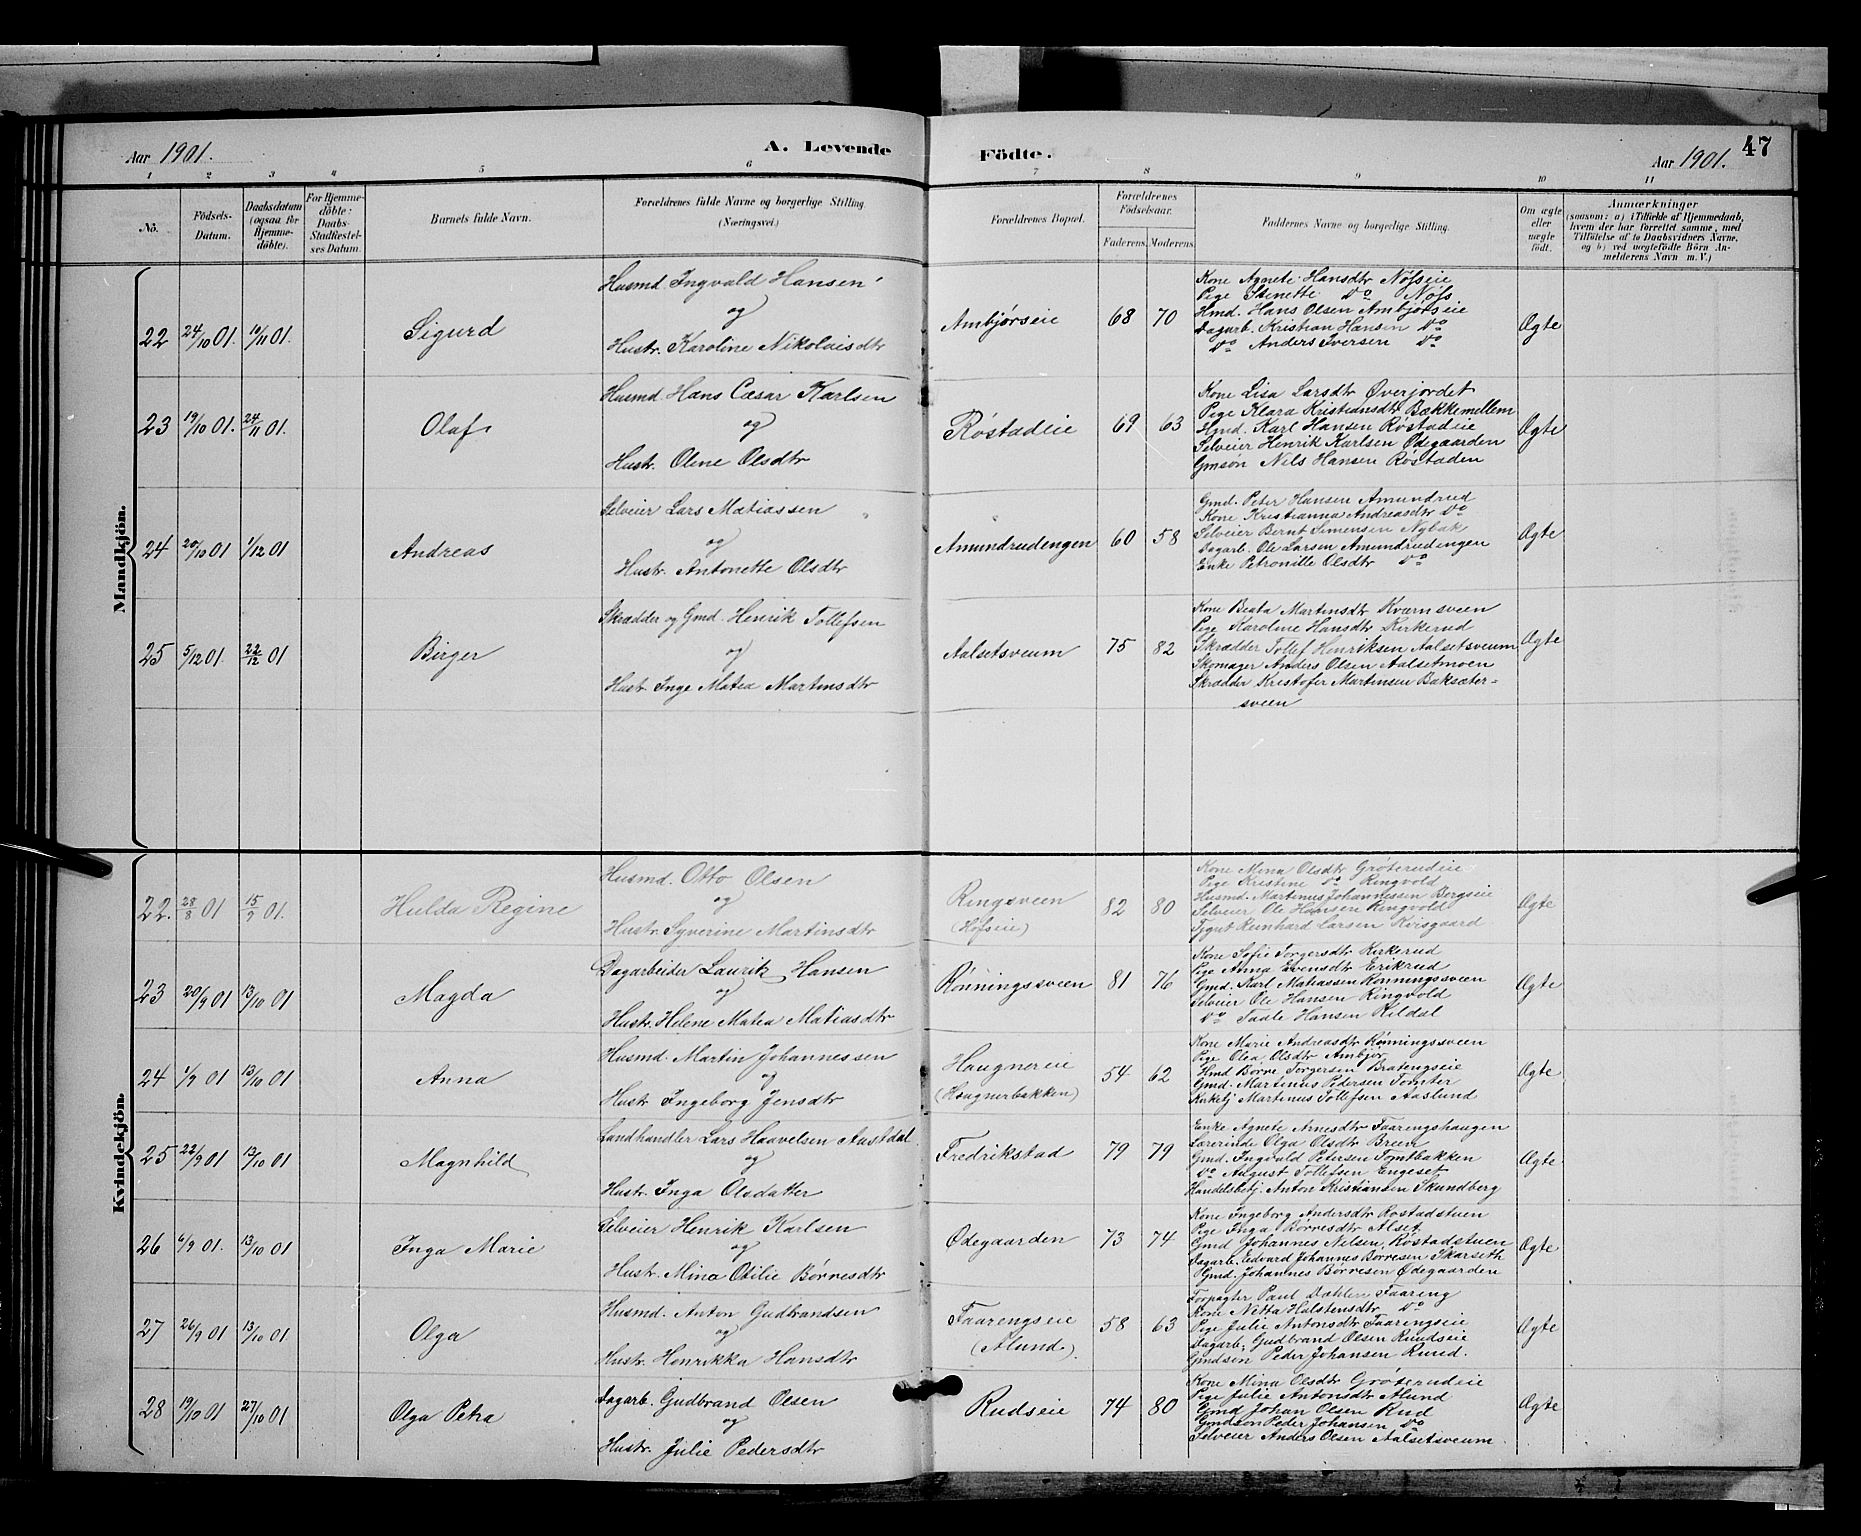 47
Aar 1901. A. Levende Födte. Aar 1901.
1 2 3 4 5 6 7 8 9 10 11
No. Födsels-Datum. Daabsdatum (ogsaa for Hjemmedöbte). For Hjemmedöbte: Daabs-Stadfæstelses Datum. Barnets fulde Navn. Forældrenes fulde Navne og borgerlige Stilling. (Næringsvei.) Forældrenes Bopæl. Forældrenes Födselsaar. Faderens. Moderens. Faddernes Navne og borgerlige Stilling. Om ægte eller uægte födt. Anmærkninger (saasom: a) i Tilfælde af Hjemmedaab, hvem der har forrettet samme, med Tilföielse af to Daabsvidners Navne, og b) ved uægtefödte Börn Anmelderens Navn m. V.)
Mandkjön.
22 24/10 01. 10/11 01. Sigurd
Husmd. Ingvald Hansen
og
Hustr. Karoline Nikolaisdtr
Ambjørseie 68 70
Kone Agnete Hansdtr Nøfseie
Pige Stenette Do Nøfs
Hmd. Hans Olsen Ambjørseie
Dagarb. Kristian Hansen Do
Do Anders Iversen Do
Ægte
23 19/10 01. 24/11 01. Olaf
Husmd. Hans Cæsar Karlsen
og
Hustr. Oline Olsdtr
Røstadeie 69 63
Kone Lisa Larsdtr Øverjordet
Pige Klara Kristiansdtr Bækkemellem
Hmd. Karl Hansen Røstadeie
Selveier Henrik Karlsen Ødegaarden
Gmsøn Nils Hansen Røstaden
Ægte
24 20/10 01 1/12 01 Andreas
Selveier Lars Matiassen
og
Hustr. Antonette Olsdtr
Amundrudengen 60 58
Gmd. Peter Hansen Amundrud
Kone Kristianna Andreasdtr Do
Selveier Bernt Simensen Nybak
Dagarb. Ole Larsen Amundrudengen
Enke Petronille Olsdtr Do
Ægte
25 5/12 01 22/12 01 Birger
Skrædder og Gmd. Henrik Tollefsen
og
Hustr. Inge Matea Martinsdtr
Aalsetsveum 75 82
Kone Beata Martinsdtr Kværnsveen
Pige Karoline Hansdtr Kirkerud
Skrædder Tollef Henriksen Aalsetsveum
Skomager Anders Olsen Aalsetmoen
Skrædder Kristofer Martinsen Baksæter-
sveen
Ægte
Kvindekjön.
22. 28/8 01 15/9 01. Hulda Regine
Husmd. Otto Olsen
og
Hustr. Syverine Martinsdtr
Ringsveen
(Hofseie)
82 80
Kone Mina Olsdtr Grøterudeie
Pige Kristine Do Ringvold
Husmd. Martinus Johannessen Bergseie
Selveier Ole Hansen Ringvold
Reinhard Larsen Kvisgaard
Ægte
23 20/9 01 13/10 01 Magda
Dagarbeider Lauritz Hansen
og
Hustr. Helene Matea Matiasdtr
Rønningsveen 81 76
Kone Sofie Torgersdtr Kirkerud
Pige Anna Evensdtr Erikrud
Gmd. Karl Matiassen Rønningsveen
Selveier Ole Hansen Ringvold
Do Taale Hansen Kildal
Ægte
24 1/9 01 13/10 01 Anna
Husmd. Martin Johannessen
og
Hustr Ingeborg Jensdtr
Haugnereie
(Haugnerbakken)
54 62
Kone Marie Andreasdtr Rønningssveen
Pige Olea Olsdtr Ambjør
Hmd Børre Torgersen Bratengseie
Gmd. Martinus Pedersen Tomter
Kirketj Martinus Tollefsen Aaslund
Ægte
25 22/9 01 13/10 01 Magnhild
Landhandler Lars Haavelsen Austdal
og
Hustr. Inga Olsdatter
Fredrikstad 79 79
Enke Agnete Arnesdtr Faarengshaugen
Lærerinde Olga Olsdtr Breen
Gmd. Ingvald Petersen Tomtbakken
Do August Tollefsen Engeset
Handelsbetj. Anton Kristiansen Skundberg
Ægte
26 6/9 01. 13/10 01 Inga Marie
Selveier Henrik Karlsen
og
Hustr. Mina Otilie Børresdtr
Ødegaarden 73 74
Kone Ingeborg Andersdtr Rostadstuen
Pige Inga Børresdtr Alset
Gmd Johannes Nelsen, Røstadstuen
Dagarb. Edvard Johannes Børresen Skarseth
Gmd. Johannes Børresen Ødegaarden
Ægte
27 26/9 01 13/10 01 Olga
Husmd. Anton Gudbrandsen
og
Hustr. Henrikka Hansdtr
Faarengseie
(Alund)
58 63
Forpagter Paul Dahlen Faaring
Kone Netta Halstensdtr Do
Pige Julie Antonsdtr Faarengseie
Dagarb. Gudbrand Olsen Ruudseie
Gmdsøn Peder Johansen Ruud.
Ægte
28 19/10 01 27/10 01 Olga Petra
Dagarb. Gudbrand Olsen
og
Hustr. Julie Pedersdtr
Rudseie 74 80
Kone Mina Olsdtr Grøterudeie
Pige Julie Antonsdtr Alund
Gmd Johan Olsen Rud
Gmdsøn Peder Johansen Do
Selveier Anders Olsen Aalsetsveum
Ægte